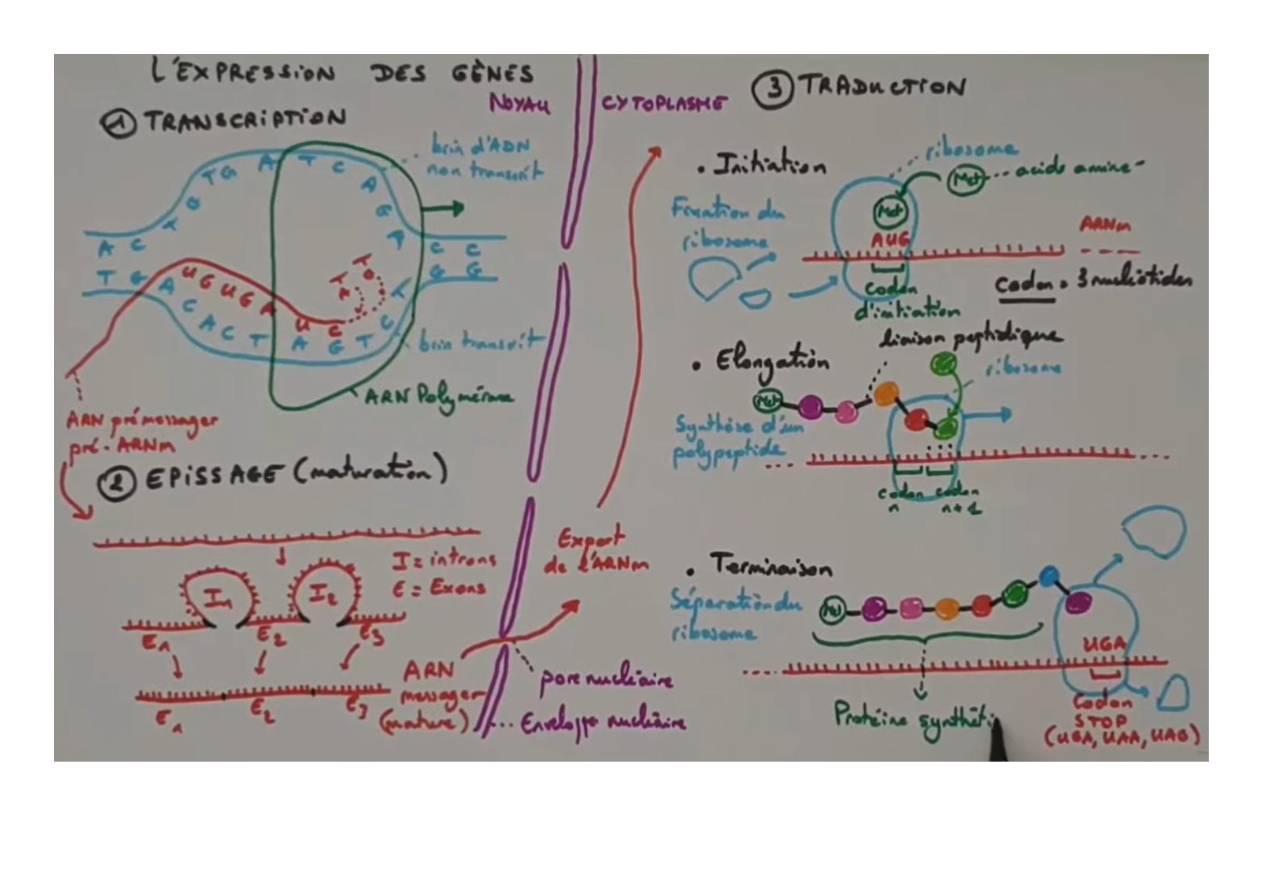 L'EXPRESSION DES GÈNES
NOYAU
CYTOPLASME
① TRANSCRIPTION
brin d'ADN
non transcrit
A C
T G
A T C A
C C
G G
U G U G A U C
A C A C T A G T C
brin transcrit
ARN Polymérase
ARN prémessager
pré-ARNm
② EPISSAGE (maturation)
I = introns
E = Exons
I1
I2
E1
E2
E3
E1
E2
E3
ARN
messager
(mature)
Export
de l'ARNm
pore nucléaire
Enveloppe nucléaire
③ TRADUCTION
• Initiation
ribosome
Met
acide aminé
Fixation du
ribosome
Met
AUG
ARNm
codon
d'initiation
codon = 3 nucléotides
• Elongation
liaison peptidique
ribosome
Met
Synthèse d'un
polypeptide
codon
n
codon
n+1
• Terminaison
Séparation du
ribosome
Met
UGA
Protéine synthéti
Codon
STOP
(UGA, UAA, UAG)